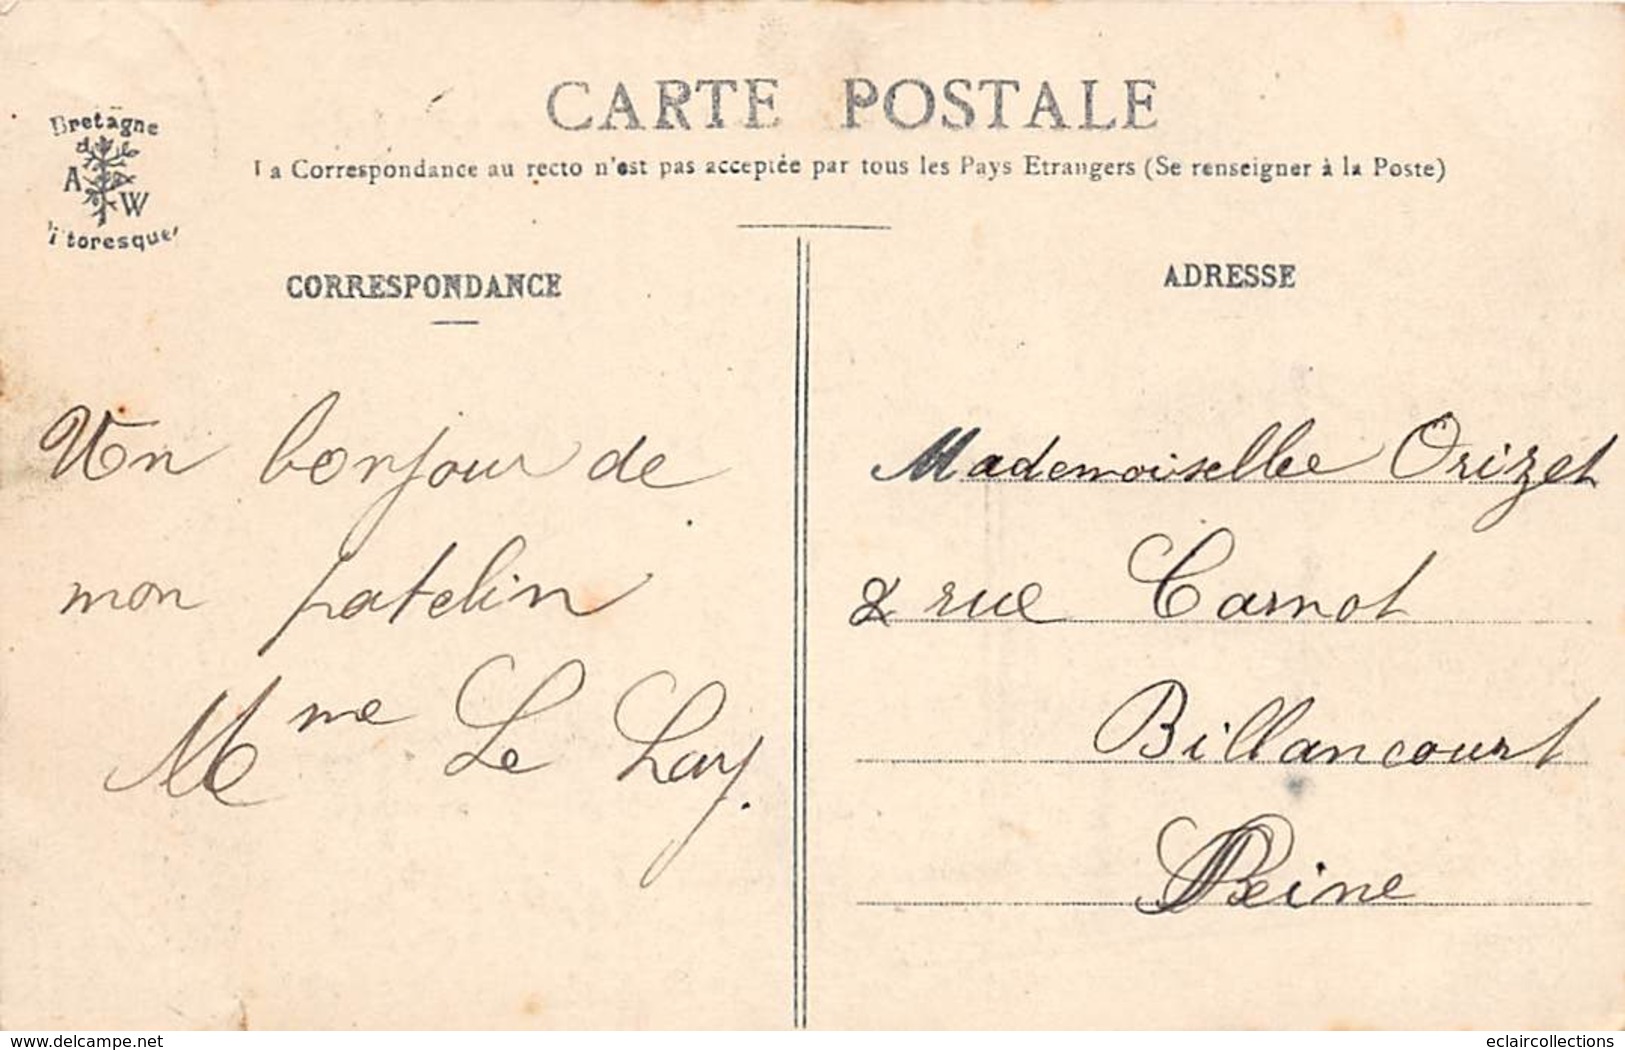 CARTE POSTALE
La Correspondance au recto n'est pas acceptée par tous les Pays Etrangers (Se renseigner à la Poste)
Bretagne
A
W
Pittoresque
CORRESPONDANCE
Un bonjour de
mon patelin
Mme Le Lay.
ADRESSE
Mademoiselle Orizet
2 rue Carnot
Billancourt
Seine
www.delcampe.net
eclaircollections